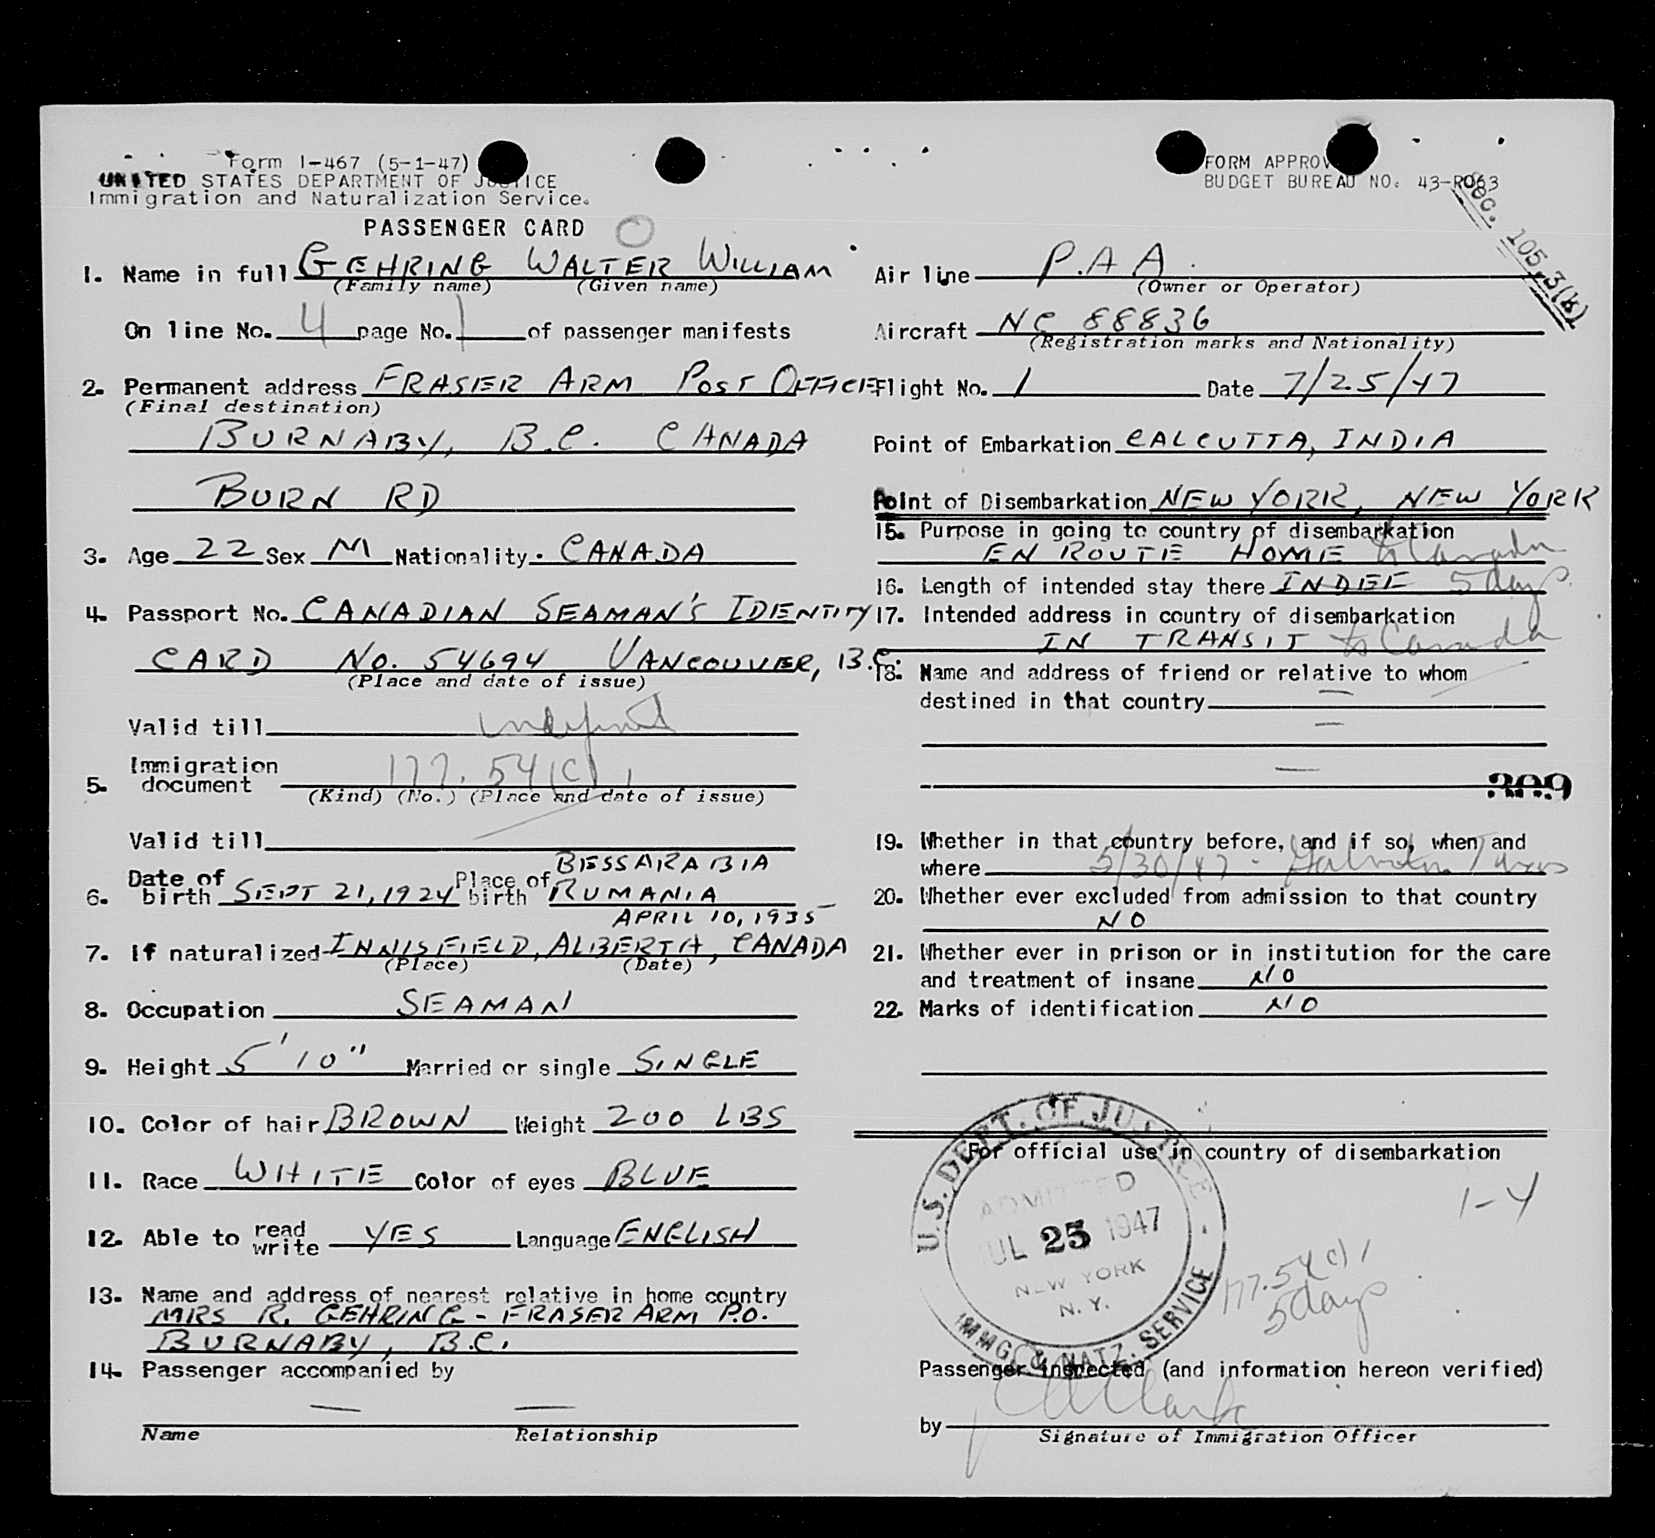 Form I-467 (5-1-47)
UNITED STATES DEPARTMENT OF JUSTICE
Immigration and Naturalization Service.
PASSENGER CARD
1. Name in full GEHRING WALTER WILLIAM
(Family name) (Given name)
On line No. 4 page No. 1 of passenger manifests
2. Permanent address FRASER ARM POST OFFICE
(Final destination)
BURNABY, B.C. CANADA
BURN RD
3. Age 22 Sex M Nationality. CANADA
4. Passport No. CANADIAN SEAMAN'S IDENTITY
CARD NO. 54694 VANCOUVER, B.C.
(Place and date of issue)
Valid till indefinit
5. Immigration document 177.54(C)1
(Kind) (No.) (Place and date of issue)
Valid till
BESSARABIA
6. Date of birth SEPT 21, 1924 Place of birth RUMANIA
APRIL 10, 1935
7. If naturalized INNISFIELD, ALBERTA, CANADA
(Place) (Date)
8. Occupation SEAMAN
9. Height 5'10" Married or single SINGLE
10. Color of hair BROWN Weight 200 LBS
11. Race WHITE Color of eyes BLUE
12. Able to read write YES Language ENGLISH
13. Name and address of nearest relative in home country
MRS R. GEHRING - FRASER ARM P.O.
BURNABY, B.C.
14. Passenger accompanied by
— —
Name Relationship
FORM APPROV
BUDGET BUREAU NO. 43-R063
Sec. 105.3(b)
Air line P.A.A.
(Owner or Operator)
Aircraft NC 88836
(Registration marks and Nationality)
Flight No. 1 Date 7/25/47
Point of Embarkation CALCUTTA, INDIA
Point of Disembarkation NEW YORK, NEW YORK
15. Purpose in going to country of disembarkation
EN ROUTE HOME to Canada
16. Length of intended stay there INDEF 5 days
17. Intended address in country of disembarkation
IN TRANSIT to Canada
18. Name and address of friend or relative to whom
destined in that country —
—
—
309
19. Whether in that country before, and if so, when and
where 5/30/47 - Galveston Texas
20. Whether ever excluded from admission to that country
NO
21. Whether ever in prison or in institution for the care
and treatment of insane NO
22. Marks of identification NO
For official use in country of disembarkation
1-4
U.S. DEPT. OF JUSTICE
ADMITTED
JUL 25 1947
NEW YORK
N.Y.
IMMG. & NATZ. SERVICE
177.54 c) 1
5 days
Passenger inspected (and information hereon verified)
by
Signature of Immigration Officer